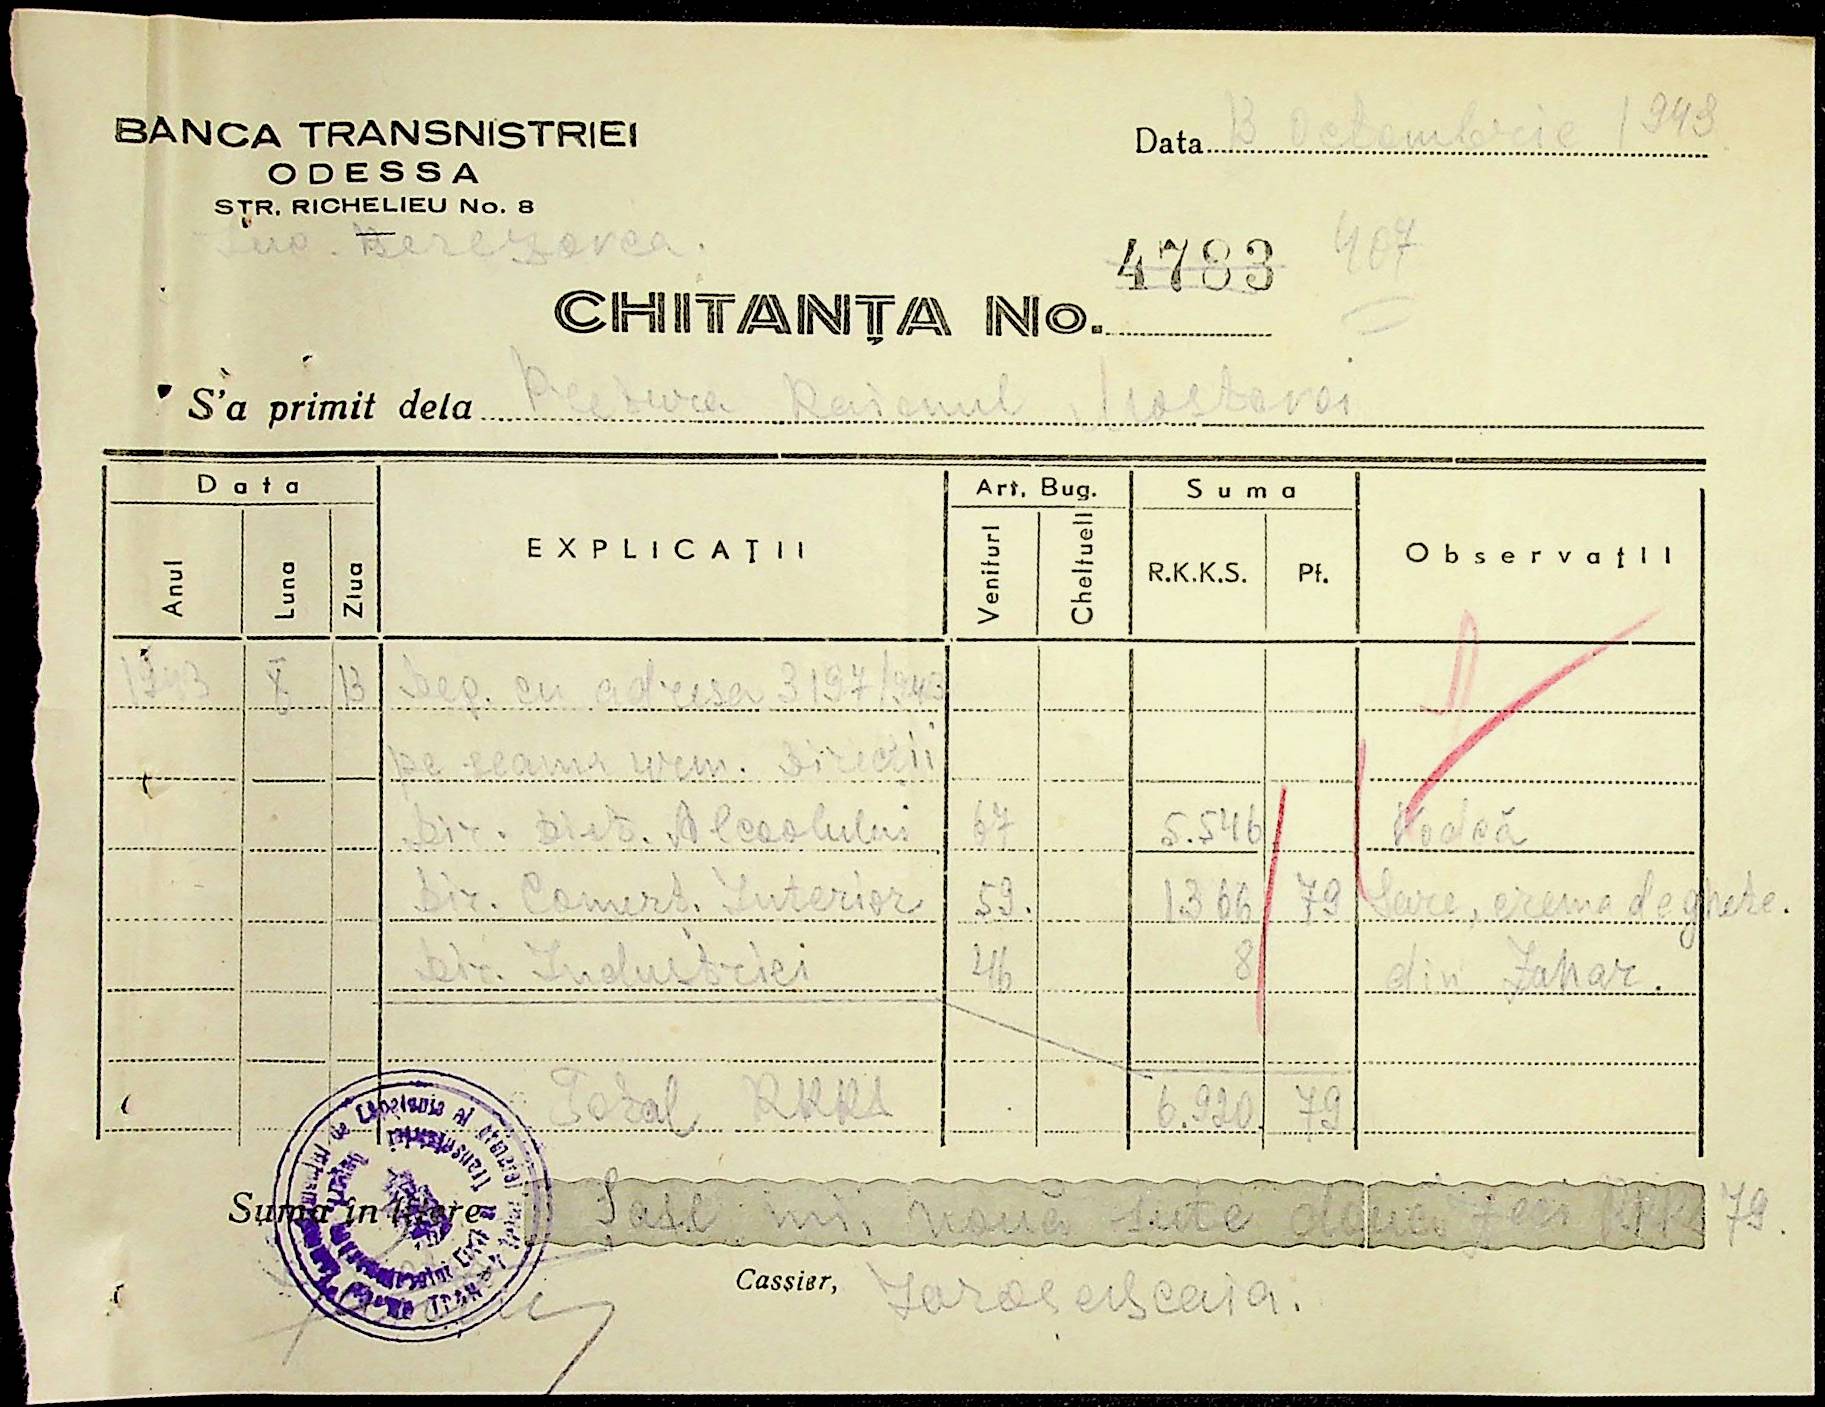 BANCA TRANSNISTRIEI
ODESSA
STR. RICHELIEU No. 8
Suc. Berezovca.
Data 13 Octombrie 1943
CHITANȚA No. 4783 407
S'a primit dela Raionul Mostovoi
Data EXPLICAȚII Art. Bug. Suma Observații
Anul Luna Ziua Venituri Cheltueli R.K.K.S. Pf.
1943 X 13 cu adresa 3197/943
pe Direcții
Dir. Alcoolului 67 5.546 Vodcă
Dir. Comerț. Interior 59. 1366 79 Sare, crema de ghete.
Dir. Industriei 46 8 din Zahar.
Total RKKS 6.920 79
Suma în litere Șase mii nouă sute două zeci RKKS 79.
Cassier,